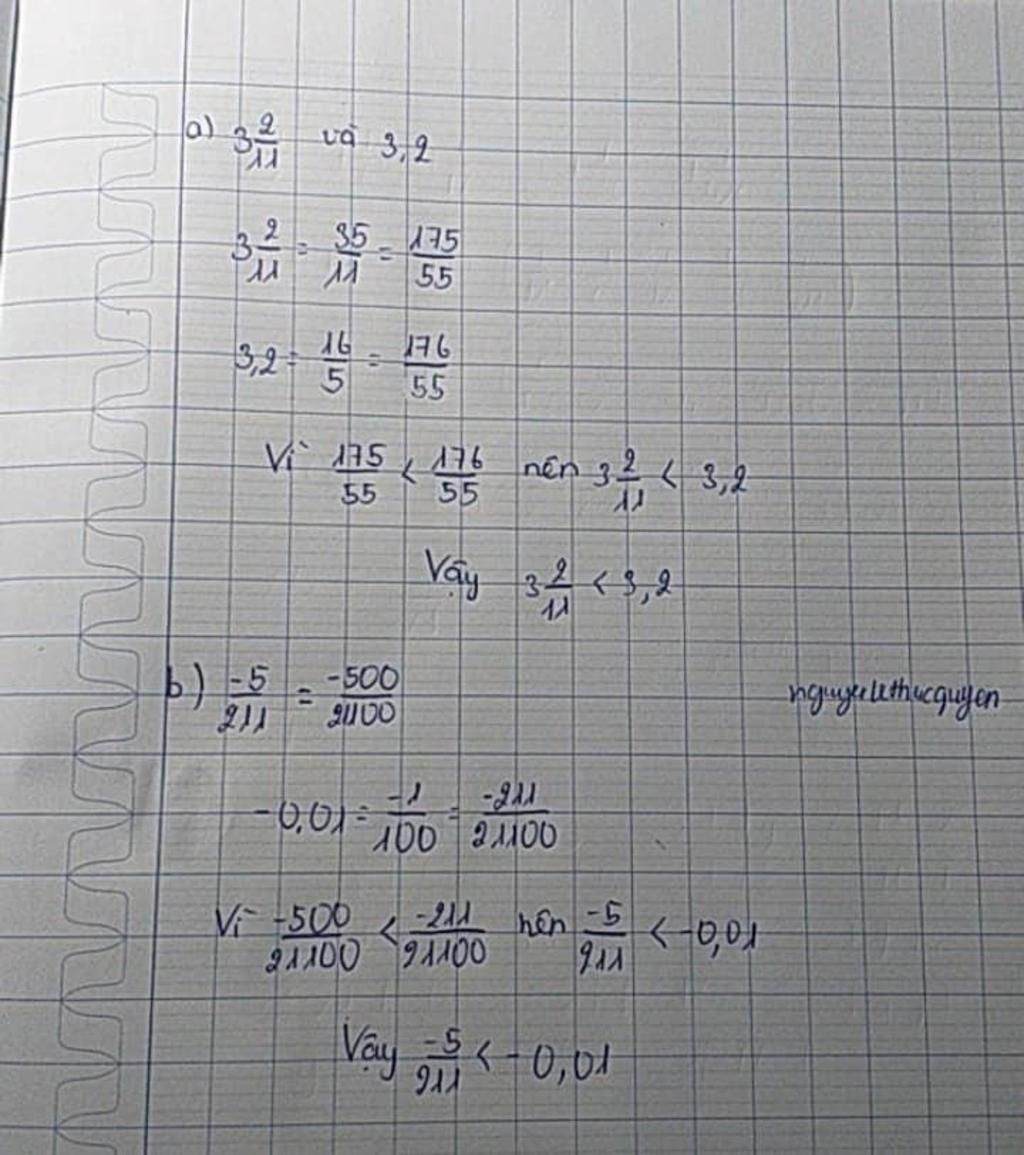 a) 3 2/11 và 3,2
3 2/11 = 35/11 = 175/55
3,2 = 16/5 = 176/55
Vì 175/55 < 176/55 nên 3 2/11 < 3,2
Vậy 3 2/11 < 3,2
b) -5/211 = -500/21100
nguyulethucquyen
-0,01 = -1/100 = -211/21100
Vì -500/21100 < -211/21100 nên -5/211 < -0,01
Vậy -5/211 < -0,01